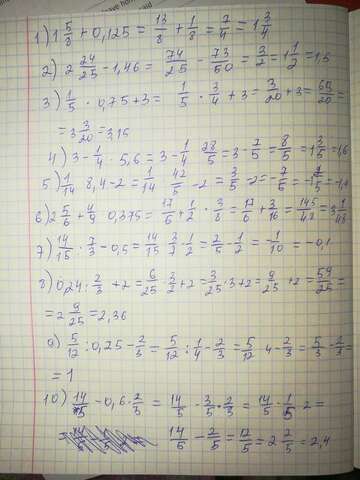 1) 1 5/8 + 0,125 = 13/8 + 1/8 = 7/4 = 1 3/4
2) 2 24/25 - 1,46 = 74/25 - 73/50 = 3/2 = 1 1/2 = 1,5
3) 1/5 · 0,75 + 3 = 1/5 · 3/4 + 3 = 3/20 + 3 = 63/20 =
= 3 3/20 = 3,15
4) 3 - 1/4 · 5,6 = 3 - 1/4 · 28/5 = 3 - 7/5 = 8/5 = 1 3/5 = 1,6
5) 1/14 · 8,4 - 2 = 1/14 · 42/5 - 2 = 3/5 - 2 = - 7/5 =
6) 2 5/6 + 4/9 · 0,375 = 17/6 + 1/2 · 3/8 = 17/6 + 3/16 = 145/48 = 3 1/48
7) 14/15 · 3/7 - 0,5 = 14/15 · 3/7 - 1/2 = 2/5 - 1/2 = - 1/10 = -0,1
8) 0,24 : 2/3 + 2 = 6/25 · 3/2 + 2 = 3/25 · 3 + 2 = 9/25 + 2 = 59/25 =
= 2 9/25 = 2,36
9) 5/12 : 0,25 - 2/3 = 5/12 : 1/4 - 2/3 = 5/12 · 4 - 2/3 = 5/3 - 2/3 =
= 1
10) 14/5 - 0,6 · 2/3 = 14/5 - 3/5 · 2/3 = 14/5 - 1/5 · 2 =
14/5 - 2/5 = 12/5 = 2 2/5 = 2,4